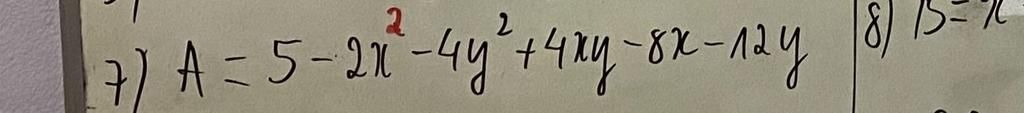 7) A = 5 - 2x² - 4y² + 4xy - 8x - 12y
8) B = x